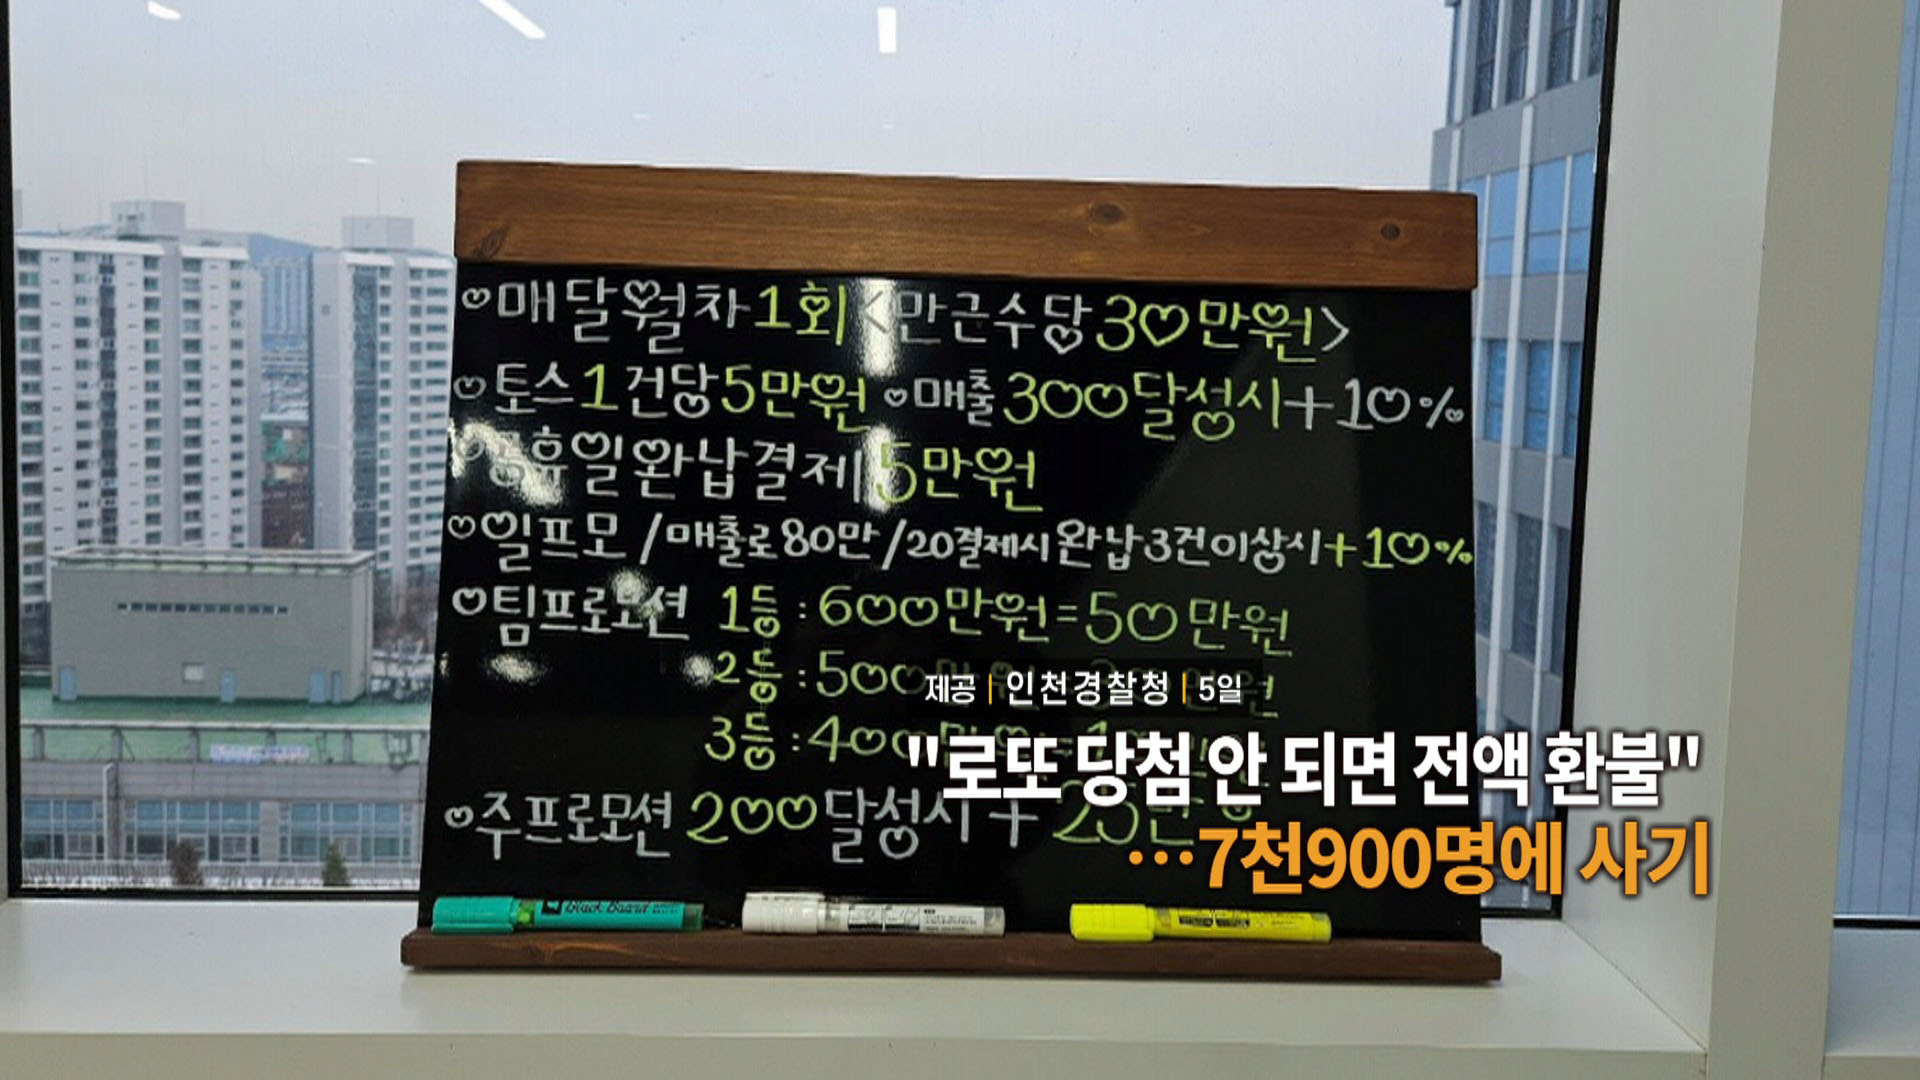 매달월차1회<만근수당30만원>
토스1건당5만원 매출300달성시+10%
공휴일완납결제 5만원
일프모/매출로80만/20결제시완납3건이상시+10%
팀프로모션 1등:600만원=50만원
2등:500
3등:400
주프로모션 200달성시+25만
Black Board
제공 | 인천경찰청 | 5일
"로또 당첨 안 되면 전액 환불"
…7천900명에 사기